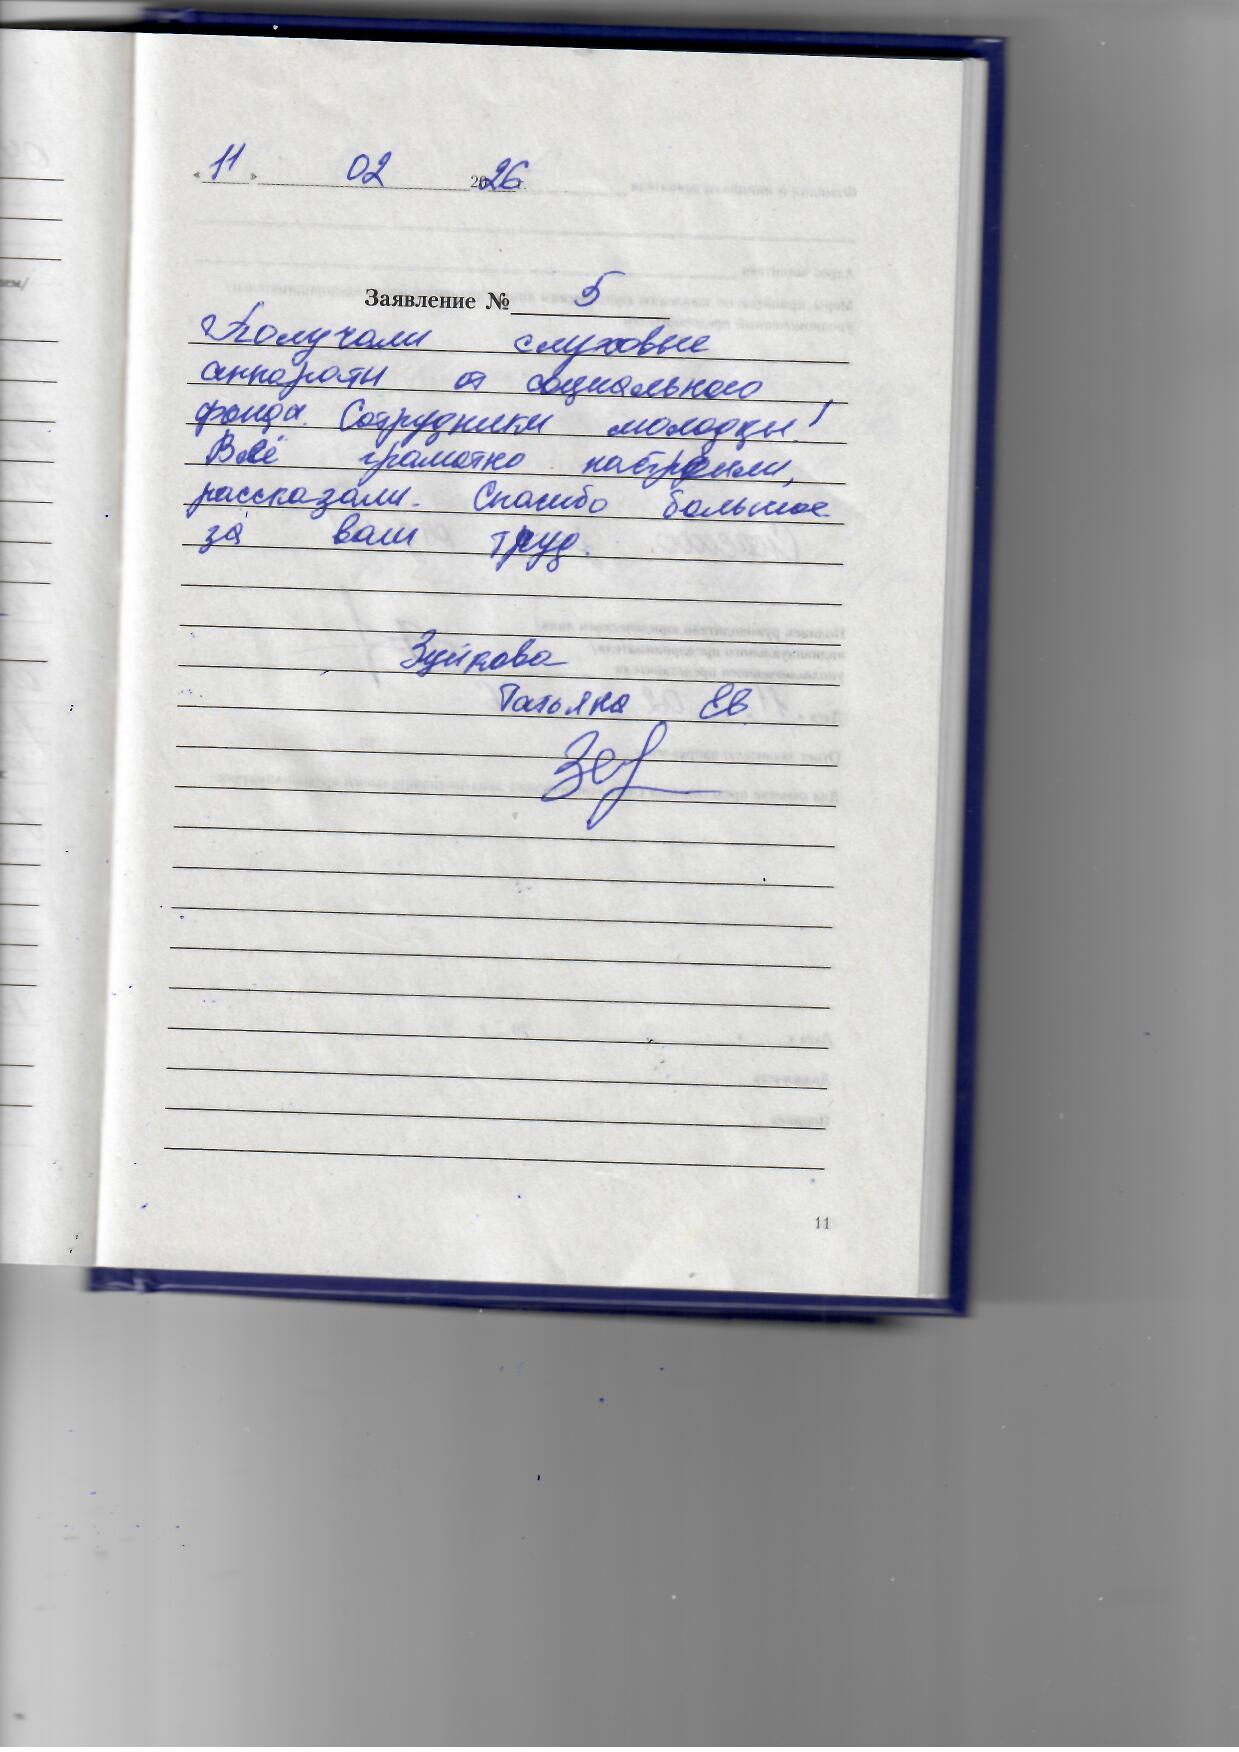 «11» 02 2026 г.
Заявление № 5
Получали слуховые
аппараты от социального
фонда. Сотрудники молодцы!
Всё грамотно настроили,
рассказали. Спасибо большое
за ваш труд.
Зуйкова
Татьяна Ев.
11